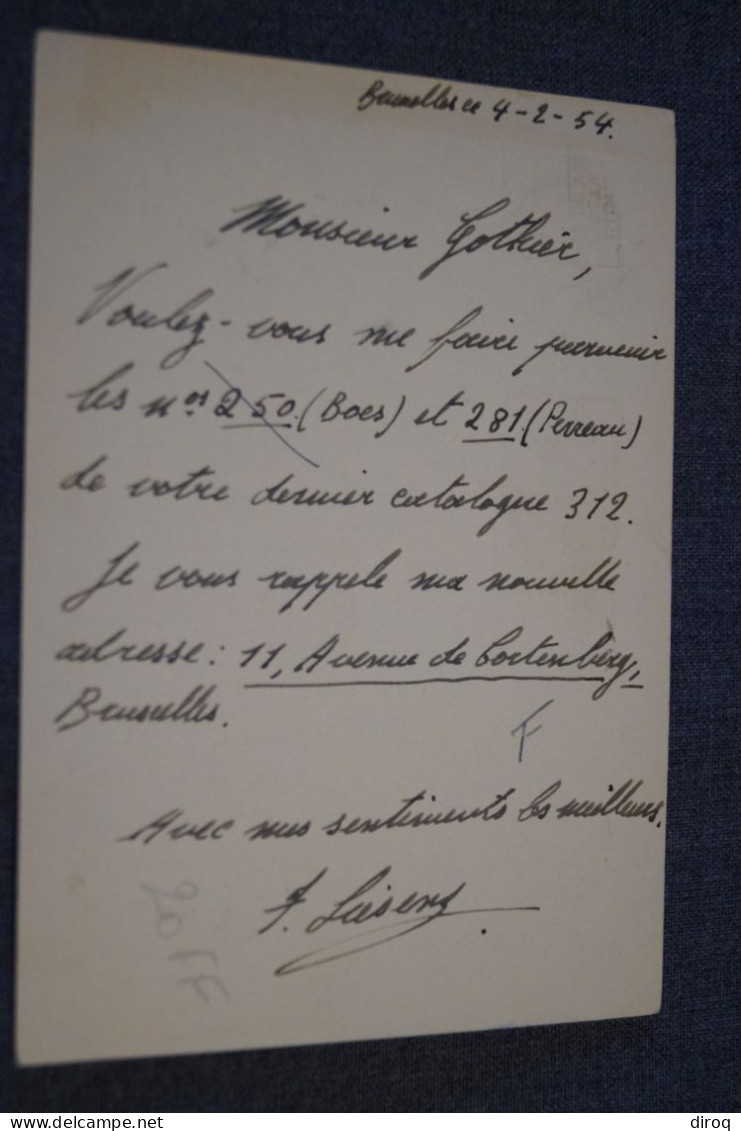 Bruxelles le 4-2-54.
Monsieur Gothier,
Voulez-vous me faire parvenir
les nos 250. (Boes) et 281. (Perreau)
de votre dernier catalogue 312.
Je vous rappele ma nouvelle
adresse: 11, Avenue de Cortenberg,
Bruxelles.
F
Avec mes sentiments les meilleurs.
F.
20 FF
delcampe.net
diroq